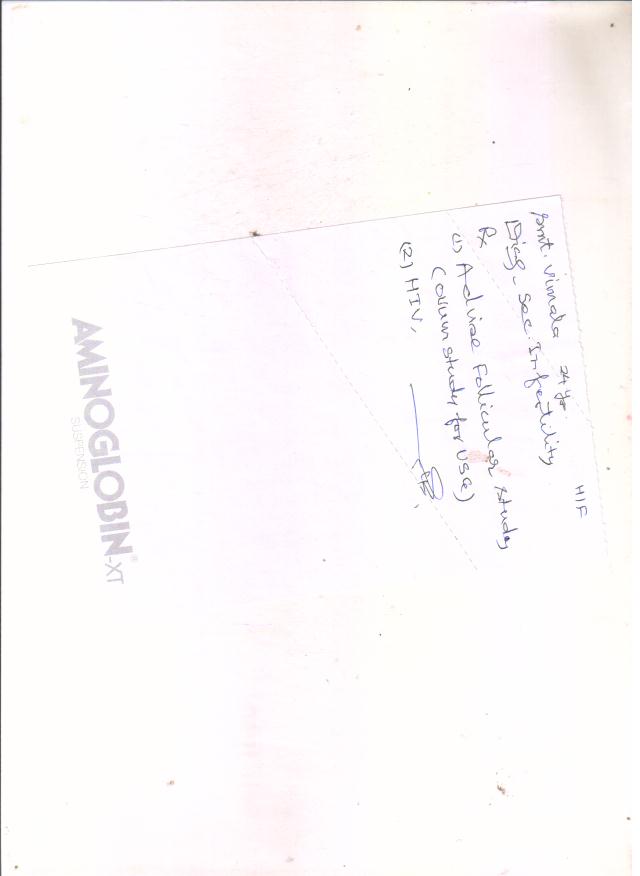 Smt. Vimala 24 yr. H/F
Diag - Sec. Infertility
Rx
(1) Advise Follicular Study
(ovum study for USG)
(2) HIV,
AMINOGLOBIN®-XT
SUSPENSION